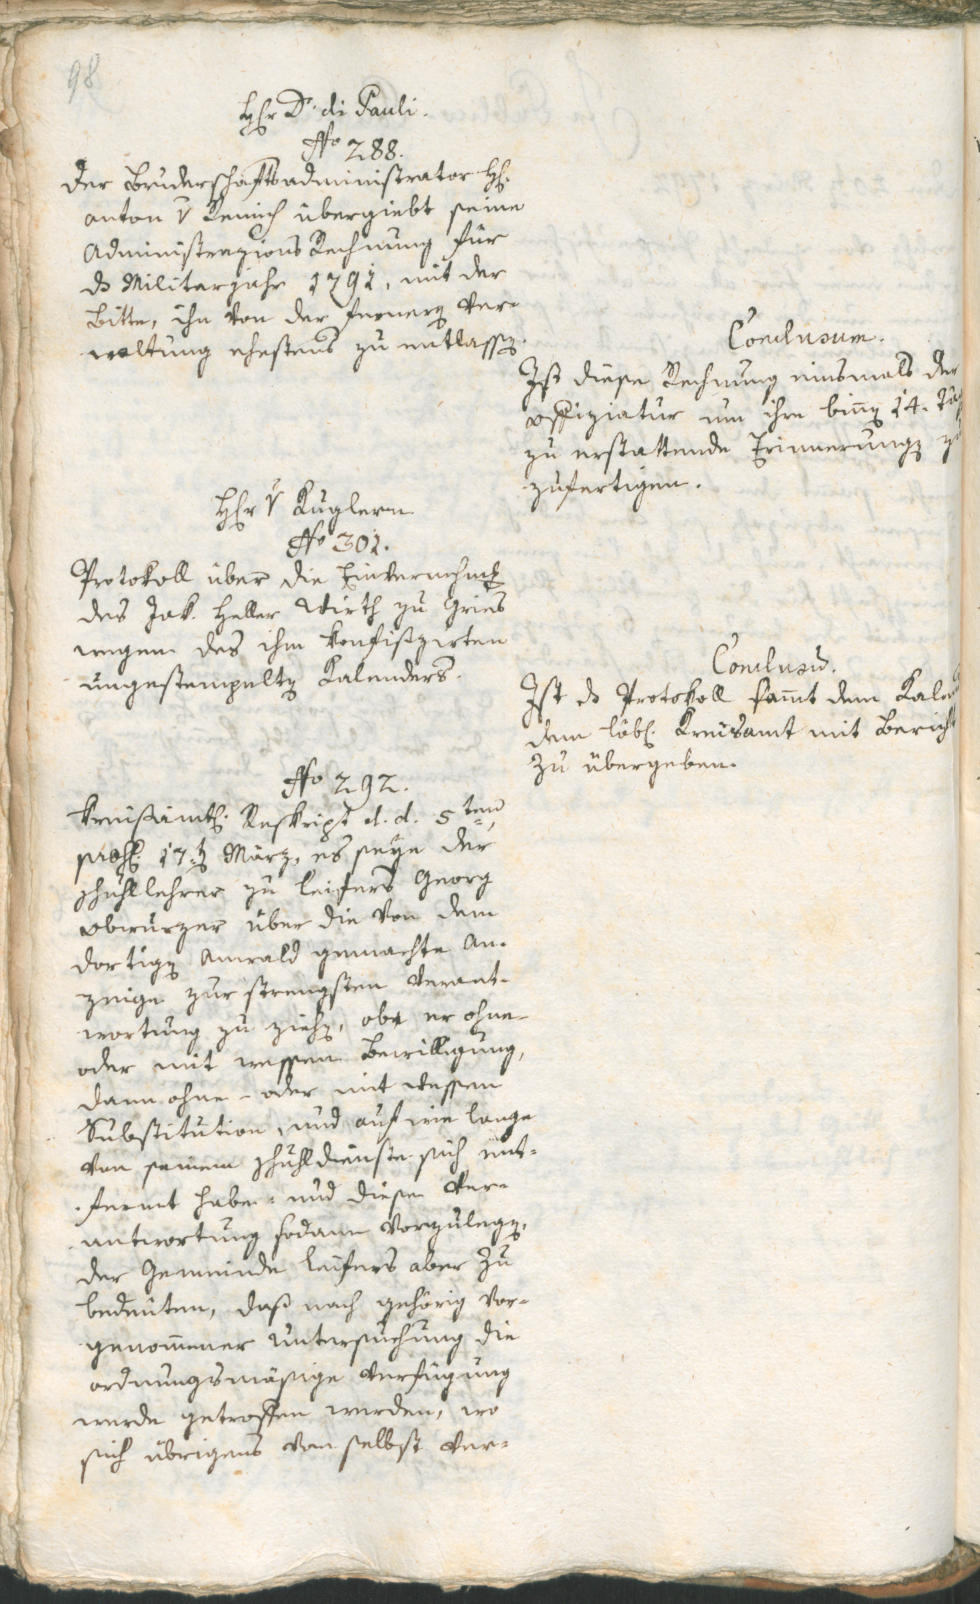 98
Hr. D. di Pauli.
No 288.
Der Bruderschaftsadministrator H.
Anton v Remich übergiebt seine
Administrazions Rechnung für
ds Militarjahr 1791, mit der
Bitte, ihn von der fernerẽ Ver-
waltung ehestens zu entlassẽ.
Conclusum.
Ist diese Rechnung einsmals der
Offiziatur um ihre binnẽ 14. Täg
zu erstattende Erinnerungẽ zu
zufertigen.
Hr. v Kuglern
No 301.
Protokoll über die Einvernehmũg
des Jak. Heller Wirth zu Gries
wegen des ihm konfiszirten
ungestempeltẽ Kalenders.
Conclusũ.
Ist ds Protokoll sam̃t dem Kalen
dem löbl. Kreisamt mit Bericht
zu übergeben.
No 292.
Kreisämtl. Reskript d. d. 5ten
17. März, es seye der
Schullehrer zu Leifers Georg
Obwurzer über die von dem
dortigẽ Anwald gemachte An-
zeige zur strengsten Verant-
wortung zu ziehẽ, ob er ohne-
oder mit wessen Bewilligung,
dann ohne- oder mit wessen
Substitution, und auf wie lange
von seinem Schuldienste sich ent-
fernt habe: und diese Ver-
antwortung sodann vorzulegẽ,
der Gemeinde Leifers aber zu
bedeuten, daß nach gehörig vor-
genom̃ener Untersuchung die
ordnungsmäsige Verfügung
werde getroffen werden, wo
sich übrigens von selbst ver-